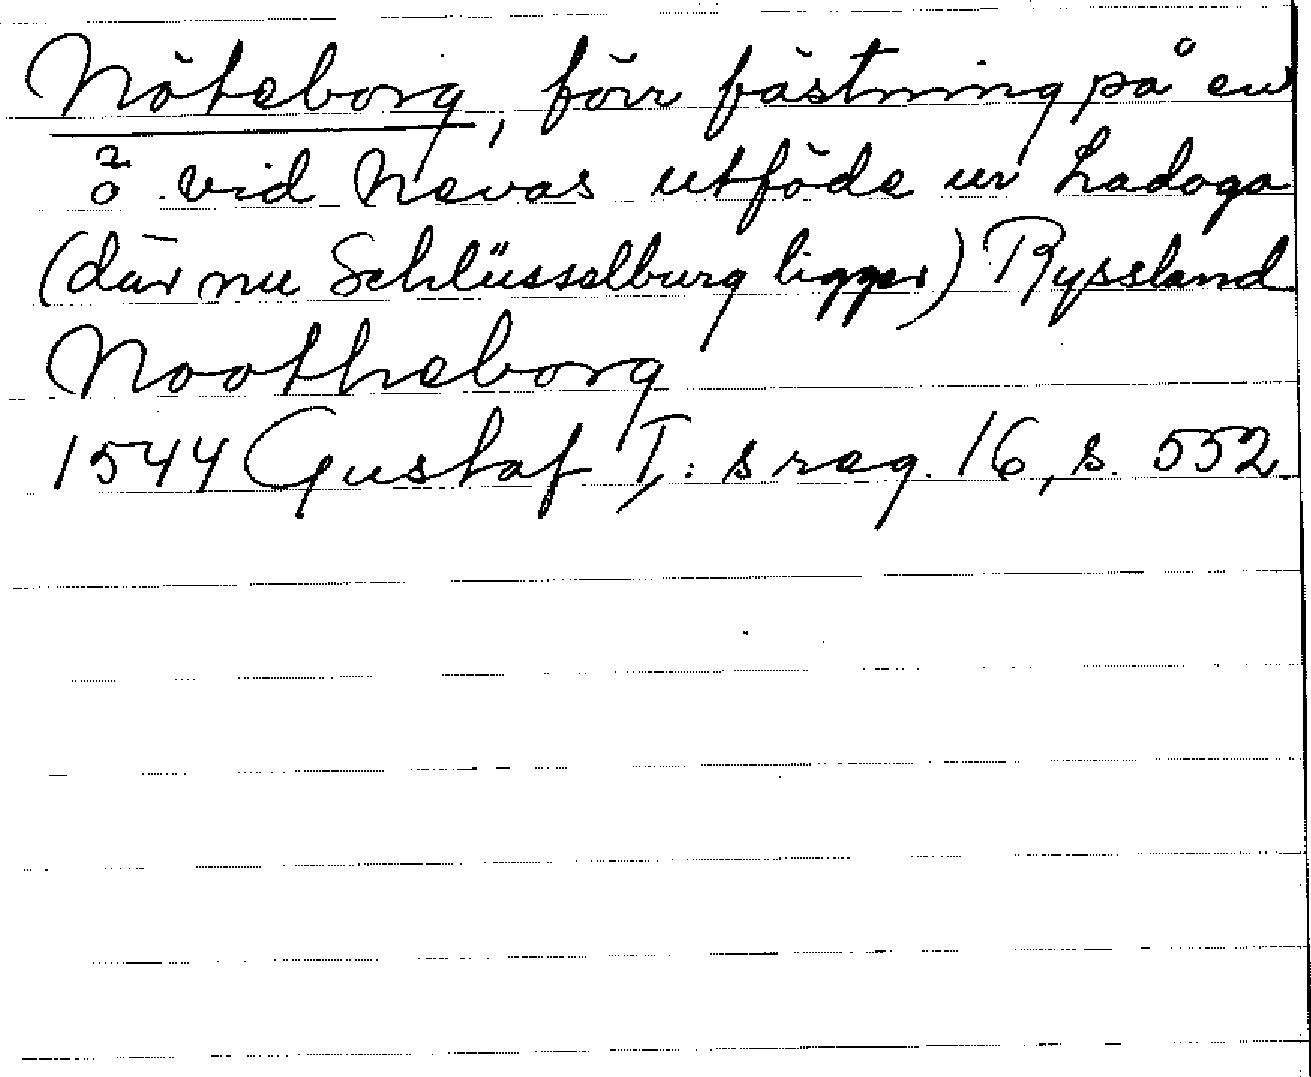 Nöteborg, förr fästning på en
ö vid Nevas utföde ur Ladoga
(där nu Schlüsselburg ligger) Ryssland
Nootheborg
1544 Gustaf I: s reg. 16, s. 552